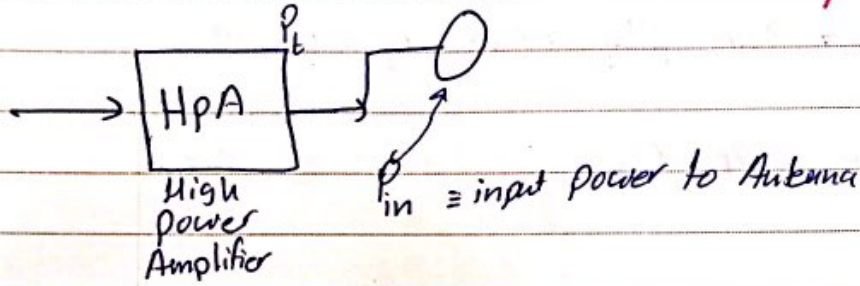 Pt
HpA
High
Power
Amplifier
Pin ≡ input power to Antenna